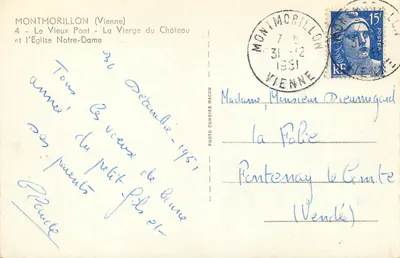 MONTMORILLON (Vienne)
4 - Le Vieux Pont - La Vierge du Château
et l'Eglise Notre-Dame
30 Décembre - 1951
Tous les vœux de bonne
année du petit fils et
ses parents
Claude
PHOTO
MONTMORILLON
31-12
1951
VIENNE
15F
POSTES
RF
Madame, Monsieur Dieumegard
La Folie
Fontenay le Comte
(Vendée)